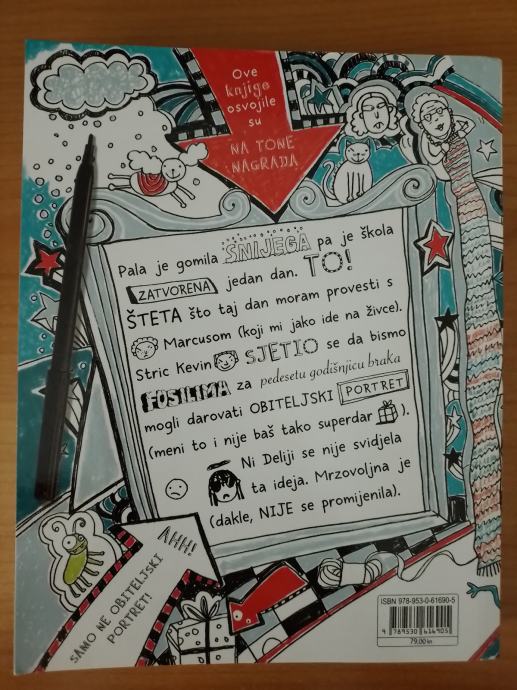 Ove
knjige
osvojile
su
NA TONE
NAGRADA
Pala je gomila SNIJEGA pa je škola
ZATVORENA jedan dan. TO!
ŠTETA što taj dan moram provesti s
Marcusom (koji mi jako ide na živce).
Stric Kevin SJETIO se da bismo
FOSILIMA za pedesetu godišnjicu braka
mogli darovati OBITELJSKI PORTRET
(meni to i nije baš tako superdar).
Ni Deliji se nije svidjela
ta ideja. Mrzovoljna je
(dakle, NIJE se promijenila).
AHH!
SAMO NE OBITELJSKI
PORTRET!
ISBN 978-953-0-61690-5
9 789530 616905
79,00 kn